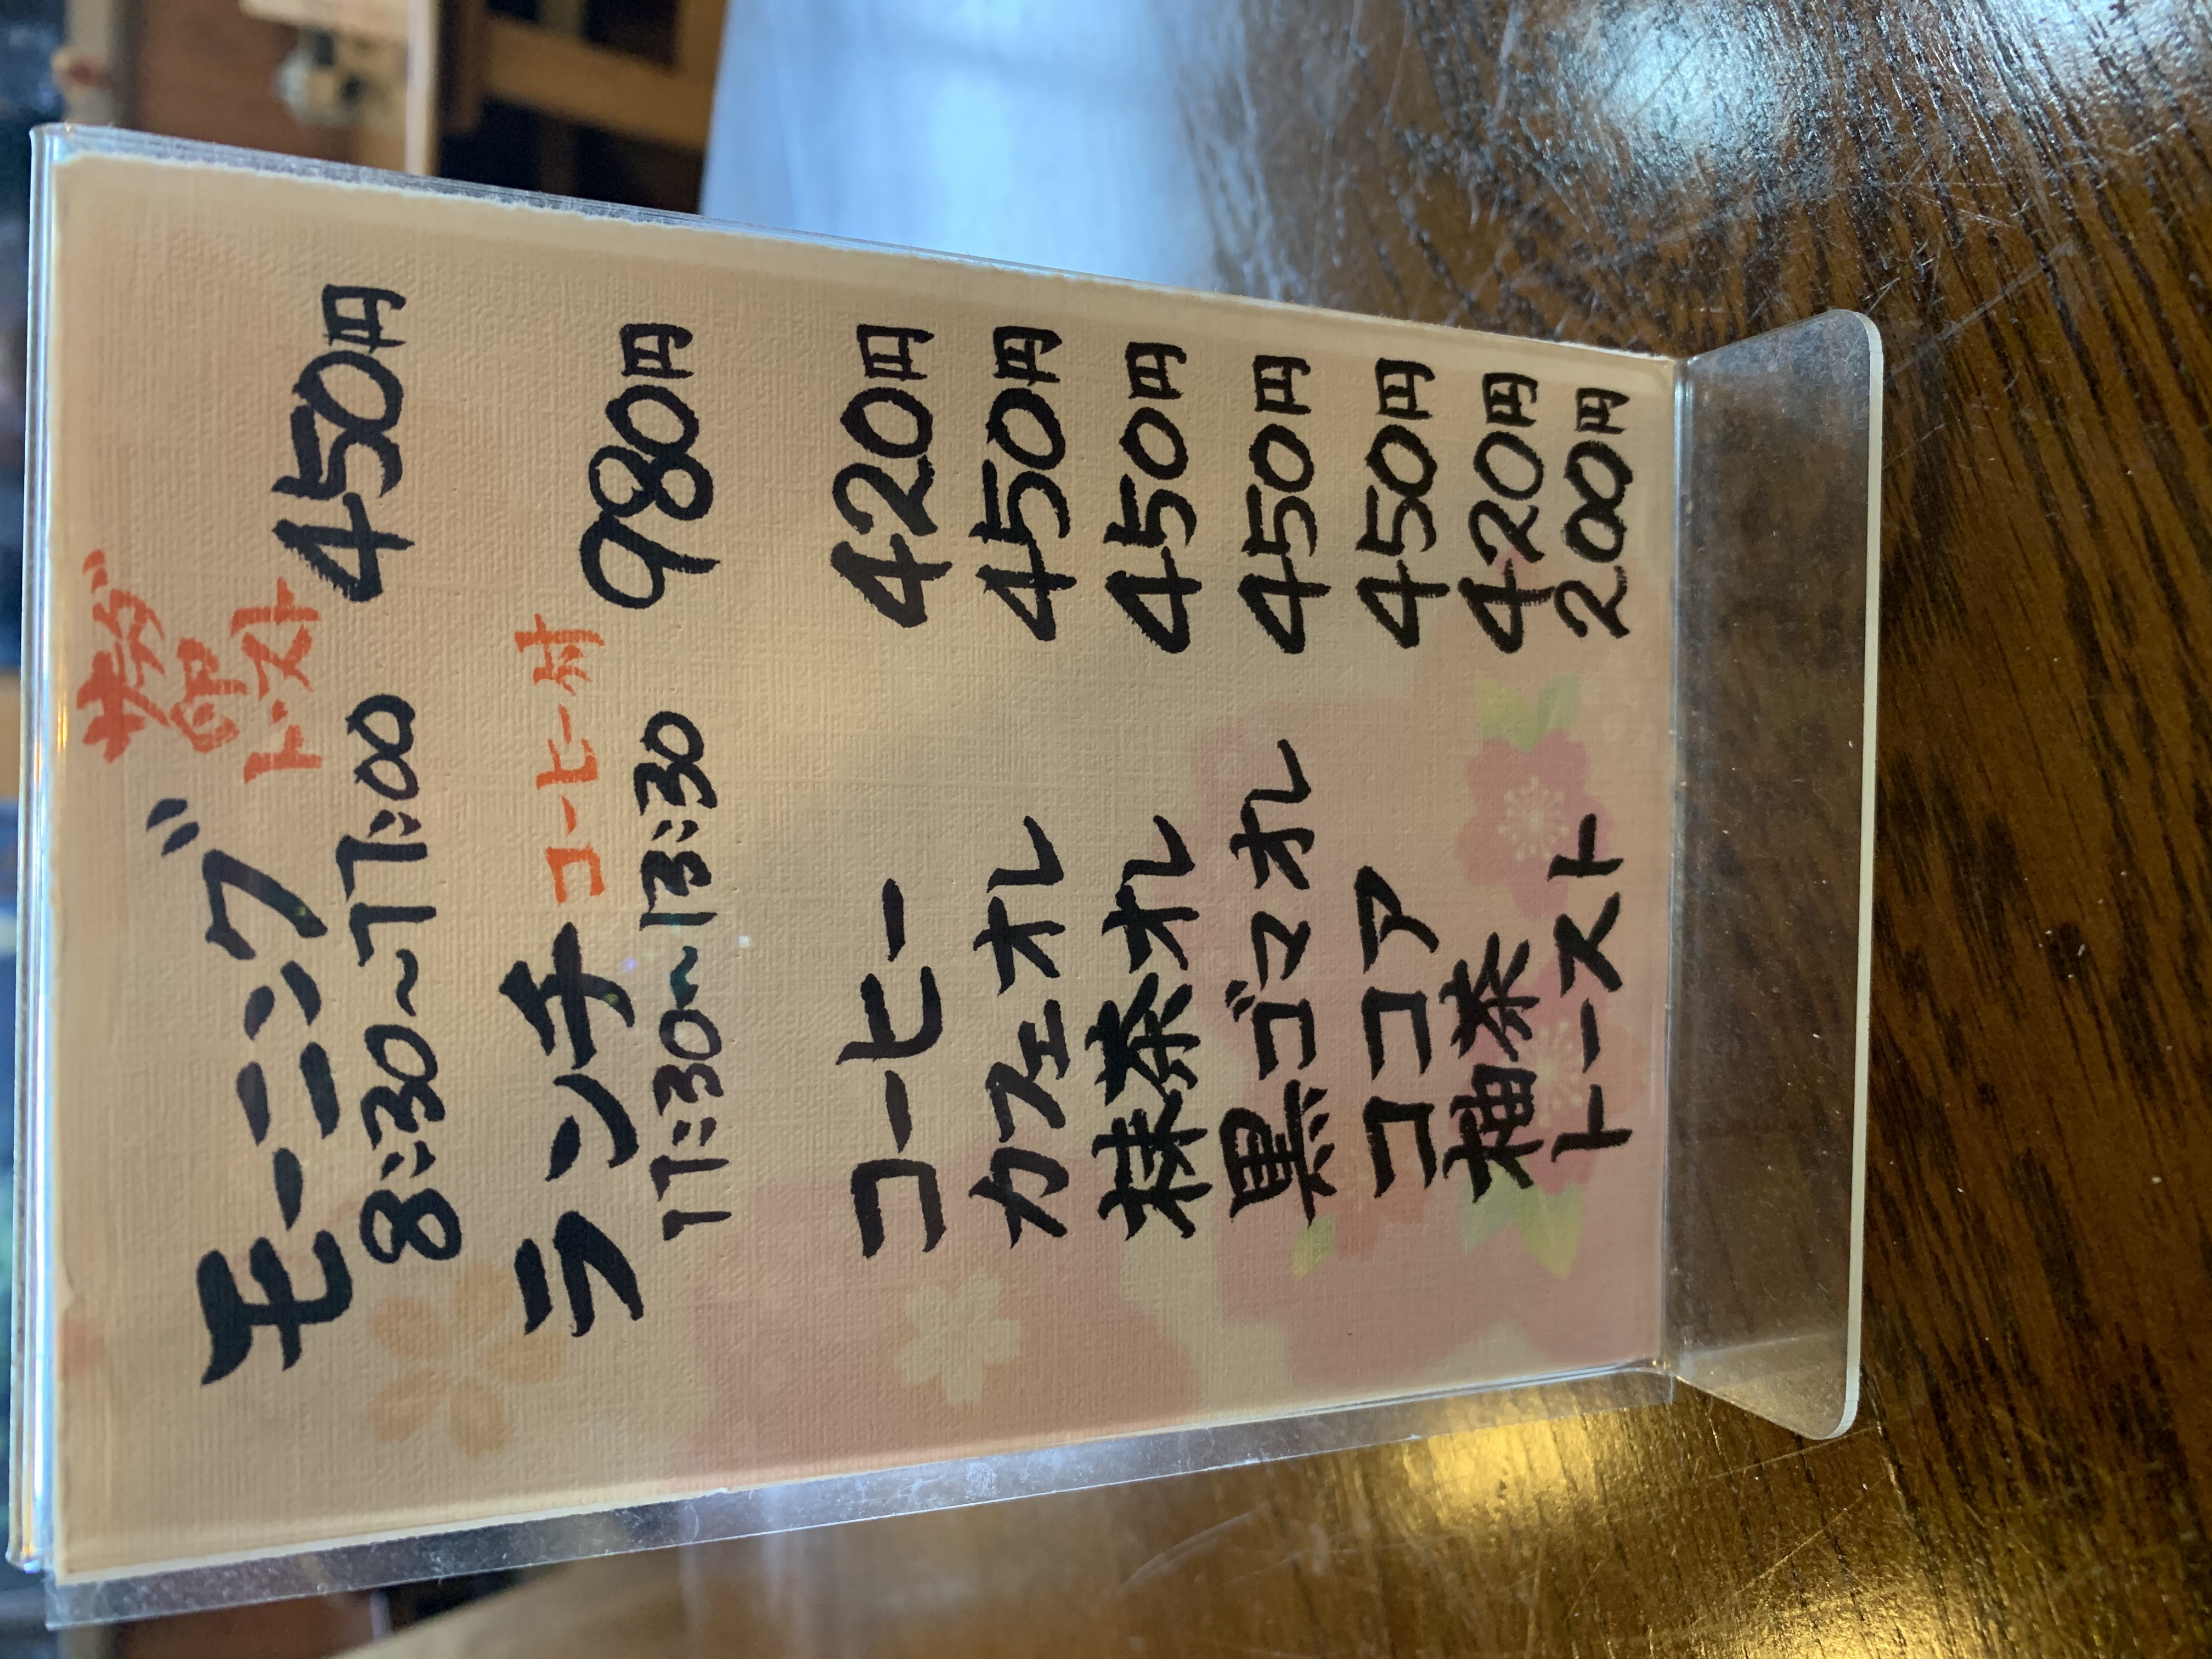 サラダ
卵
トースト
モーニング
8:30～11:00 450円
コーヒー付
ランチ
11:30～13:30 980円
コーヒー 420円
カフェオレ 450円
抹茶オレ 450円
黒ゴマオレ 450円
ココア 450円
柚茶 420円
トースト 200円